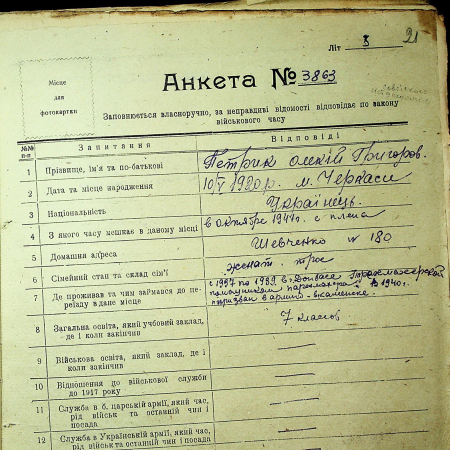 91
Літ 3
Місце
для
фотокартки
Анкета № 3863
Заповнюється власноручно, за неправдиві відомості відповідає по закону
військового часу
№№
п-п
Запитання
Відповіді
1 Прізвище, ім'я та по-батькові Петрик Олексій Григоров.
2 Дата та місце народження 10/V 1920 р. м. Черкаси
3 Національність Українець.
4 З якого часу мешкає в даному місці в октябре 1941 г. с плена
5 Домашня адреса Шевченко № 180
6 Сімейний стан та склад сім'ї женат. трое
7 Де проживав та чим займався до переїзду в дане місце с 1937 по 1939 в Донбасе
помощником В 1940 г.
призван в армию
8 Загальна освіта, який учбовий заклад, де і коли закінчив 7 класов
9 Військова освіта, який заклад, де і коли закінчив
10 Відношення до військової служби до 1917 року
11 Служби в б. царській армії, який час, рід військ та останній чин і посада
12 Служба в Українській армії, який час, рід військ та останній чин і посада